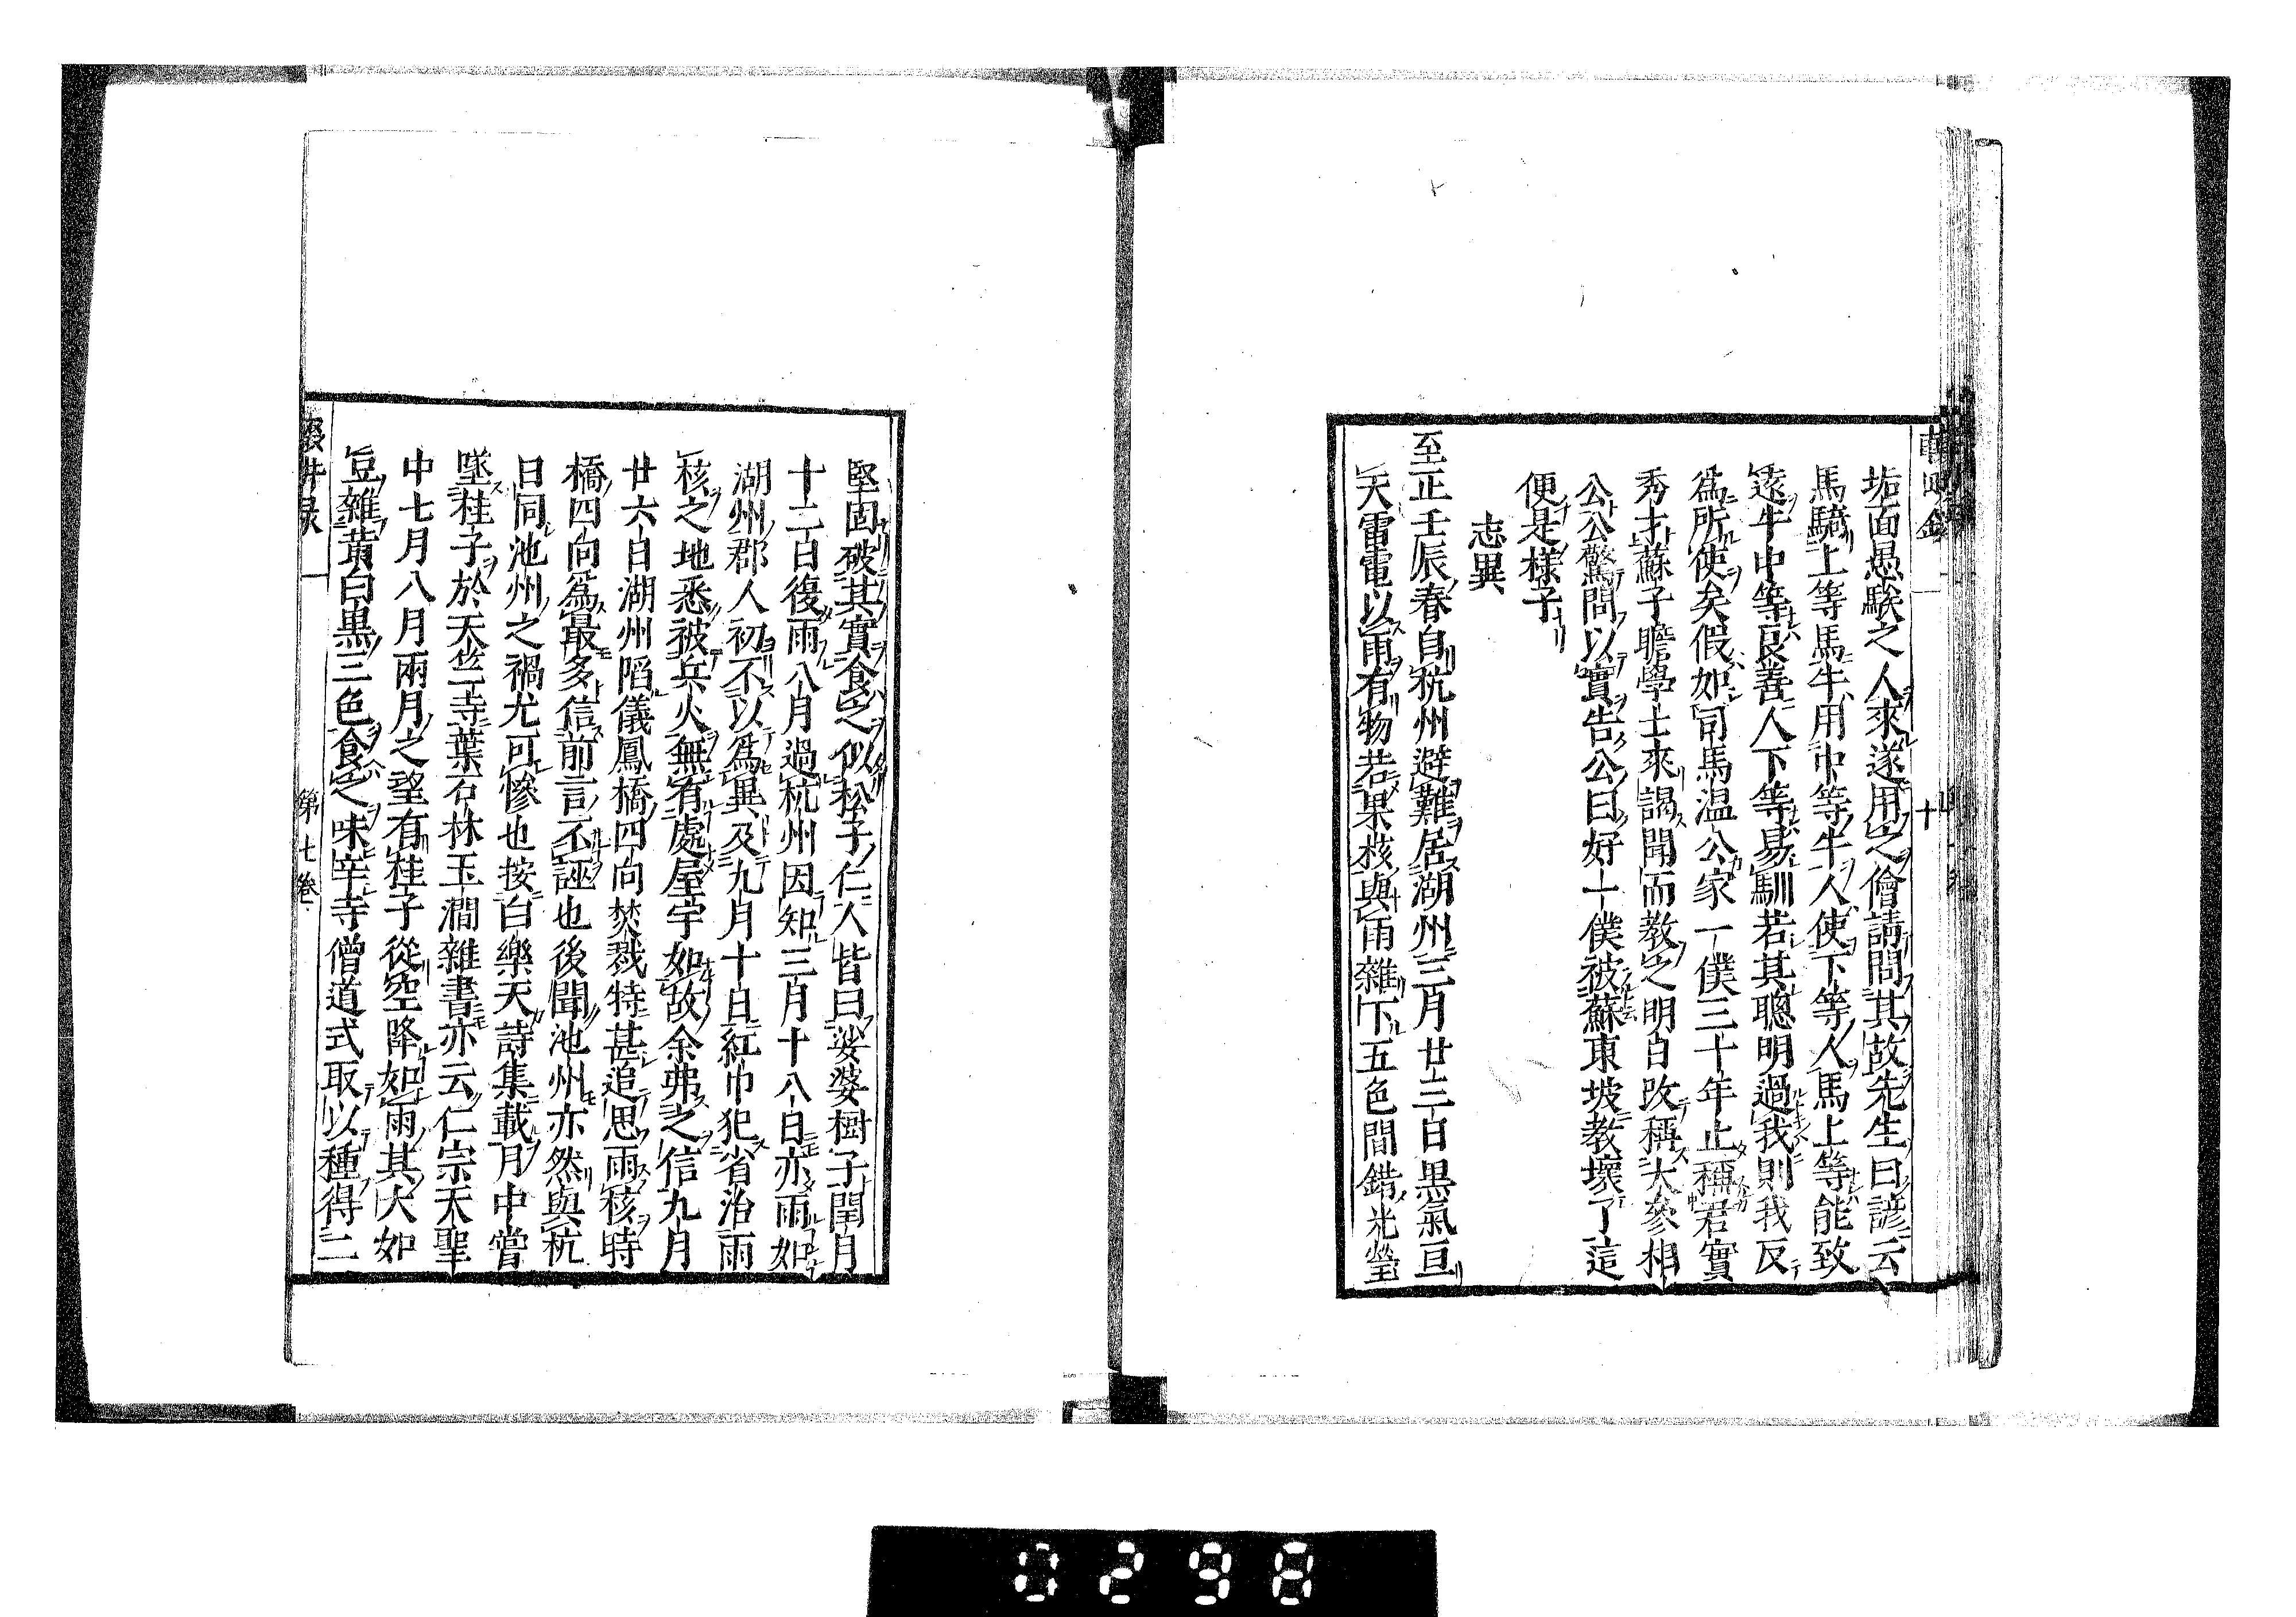 垢面愚騃之人來遂用之儈請問其故先生曰諺云
馬騎上等馬牛用中等牛人使下等人馬上等能致
遠牛中等良善人下等易馴若其聰明過我則我反
爲所使矣假如司馬温公家一僕三十年止稱君實
秀才蘇子瞻學士來謁聞而教之明日改稱大參相
公公驚問以實告公曰好一僕被蘇東坡教壞了這
便是樣子
志異
至正壬辰春自杭州避難居湖州三月廿三日黒氣亘
天雷電以雨有物若果核與雨雜下五色間錯光瑩
堅固破其實食之似松子仁人皆曰娑婆樹子閏月
十二日復雨八月過杭州因知三月十八日亦雨如
湖州郡人初不以爲異及九月十日紅巾犯省治雨
核之地悉被兵火無有處屋宇如故余弗之信九月
廿六日湖州陷儀鳳橋四向焚戮特甚追思雨核時
橋四向爲最多信前言不誣也後聞池州亦然與杭
日同池州之禍尤可慘也按白樂天詩集載月中嘗
墜桂子於天竺寺葉石林玉澗雜書亦云仁宗天聖
中七月八月兩月之望有桂子從空降如雨其大如
豆雜黄白黒三色食之味辛寺僧道式取以種得二
第七卷
十
0298